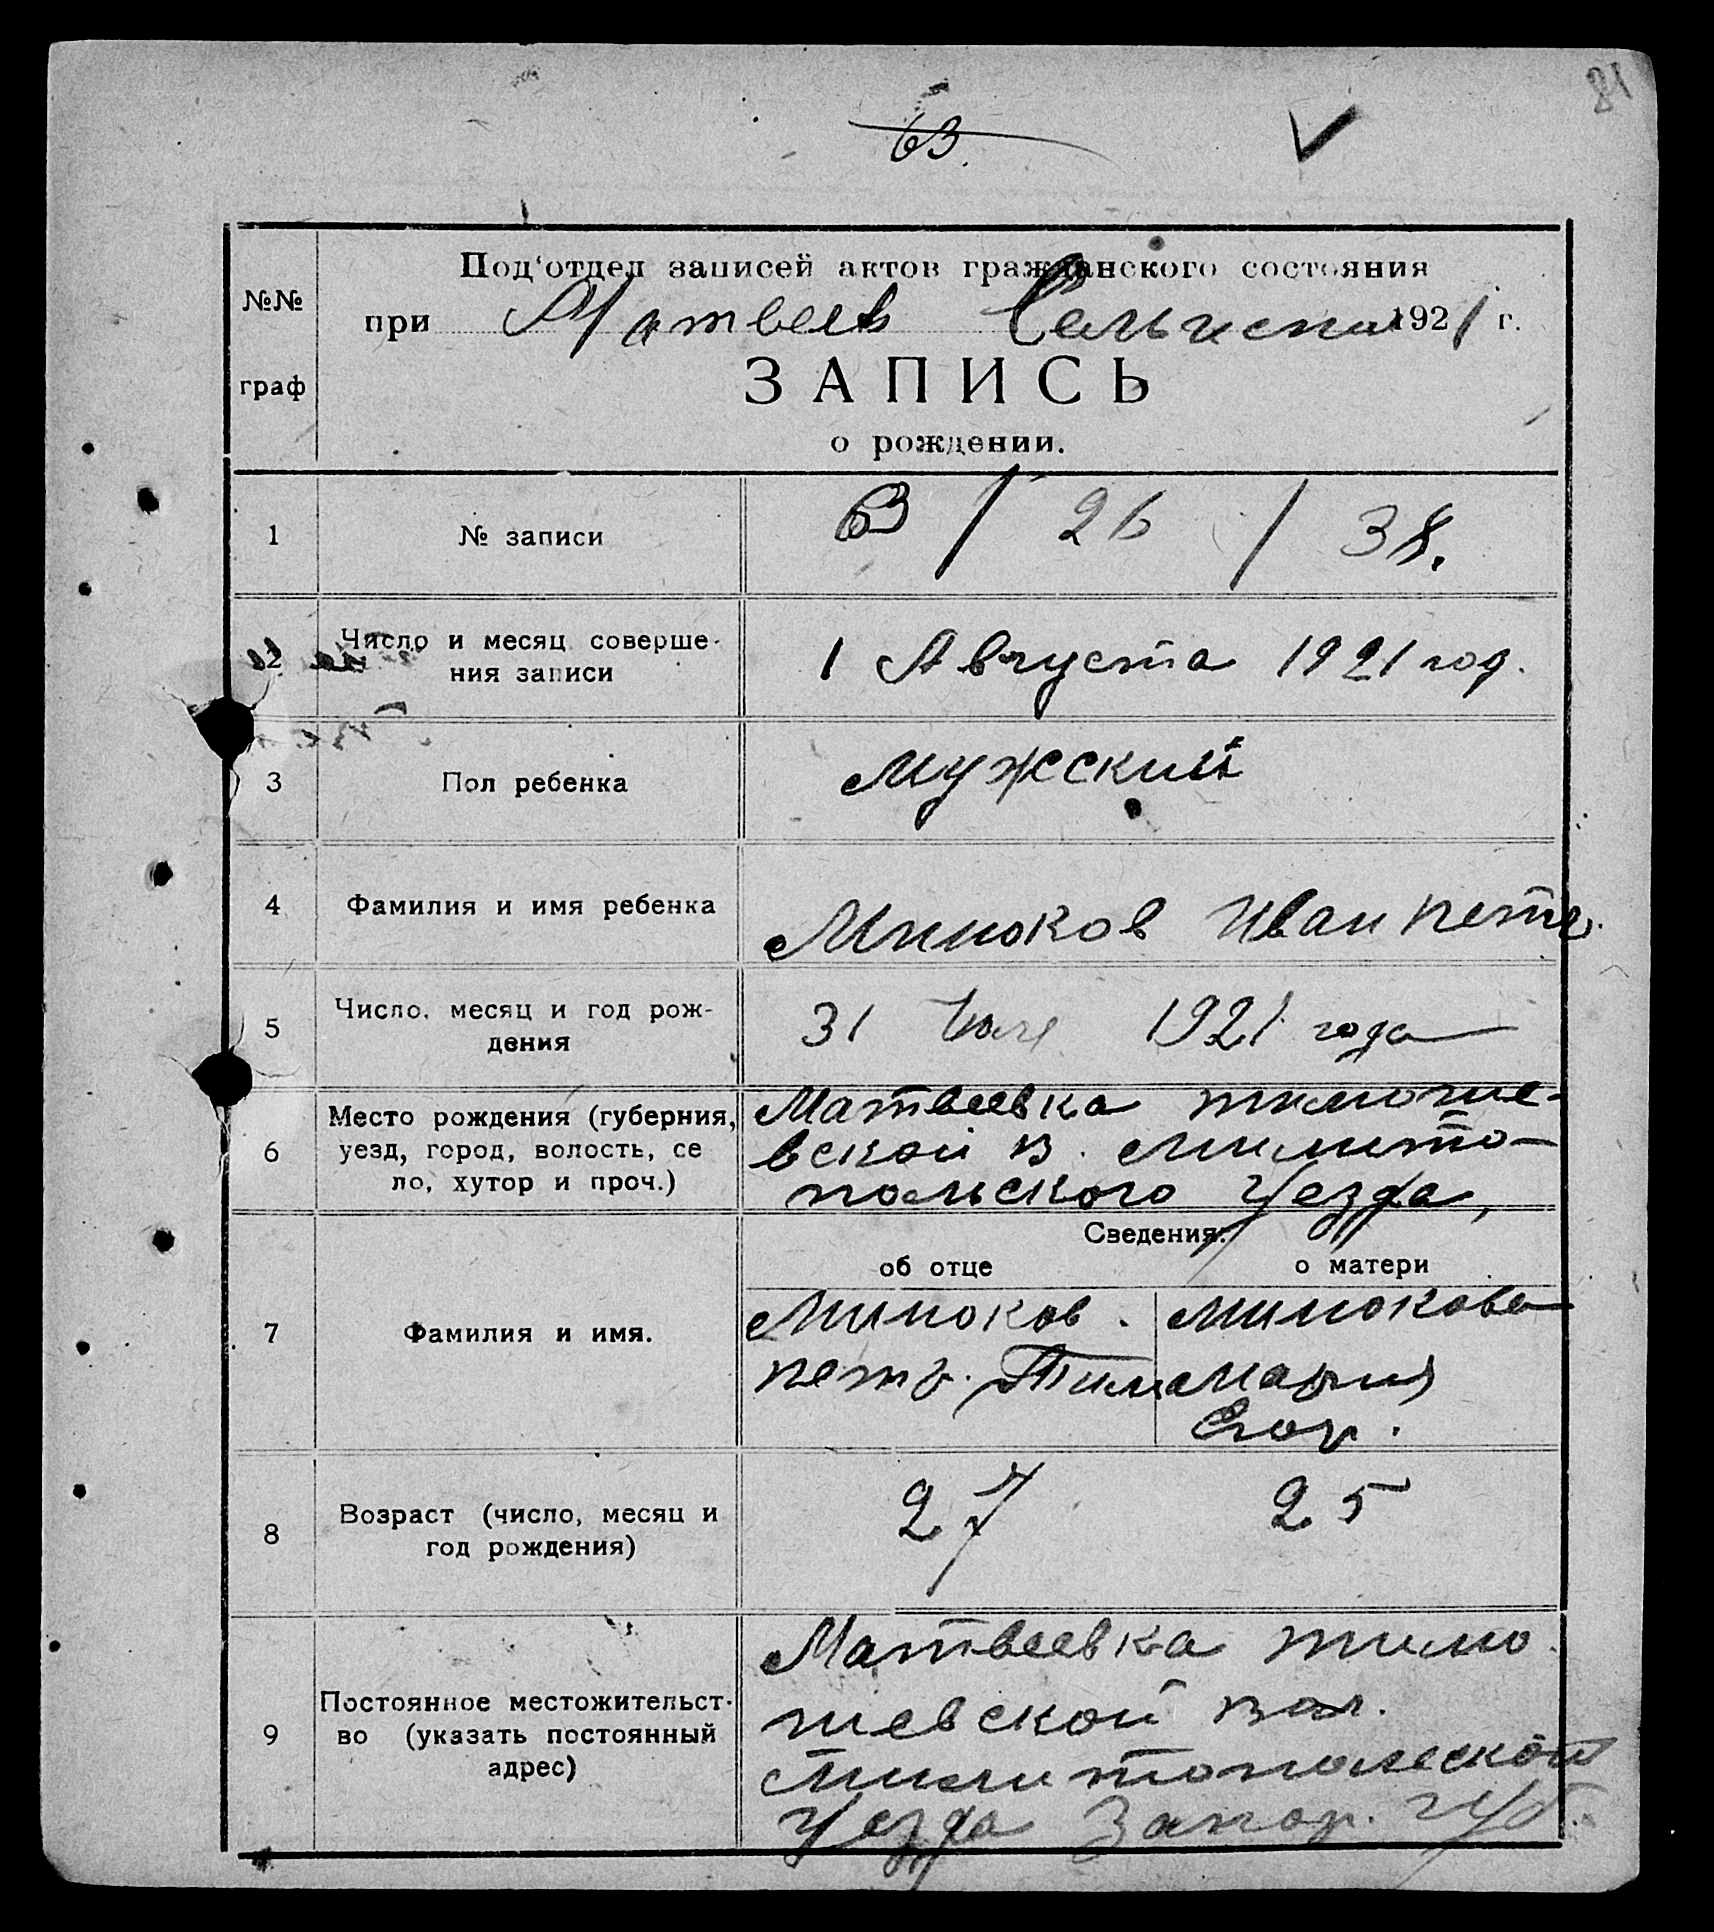 81
63
№№ граф
Под'отдел записей актов гражданского состояния
при Матвеев Сельиспол 1921 г.
ЗАПИСЬ
о рождении.
1 № записи 63 / 26 / 38.
2 Число и месяц соверше- 1 Августа 1921 год.
ния записи
3 Пол ребенка Мужеский
4 Фамилия и имя ребенка Минюков Иван петр.
5 Число, месяц и год рож- 31 Июля 1921 года
дения
6 Место рождения (губерния, Матвеевка тимоше-
уезд, город, волость, се вской в. Милито-
ло, хутор и проч.) польского Уезда,
Сведения:
об отце о матери
7 Фамилия и имя. Минюков. Минюкова
петр. Тим. Мария
Егор.
8 Возраст (число, месяц и 27 25
год рождения)
9 Постоянное местожительст- Матвеевка тимо
во (указать постоянный шевской вол.
адрес) Милитопольской
Уезда Запор. губ.